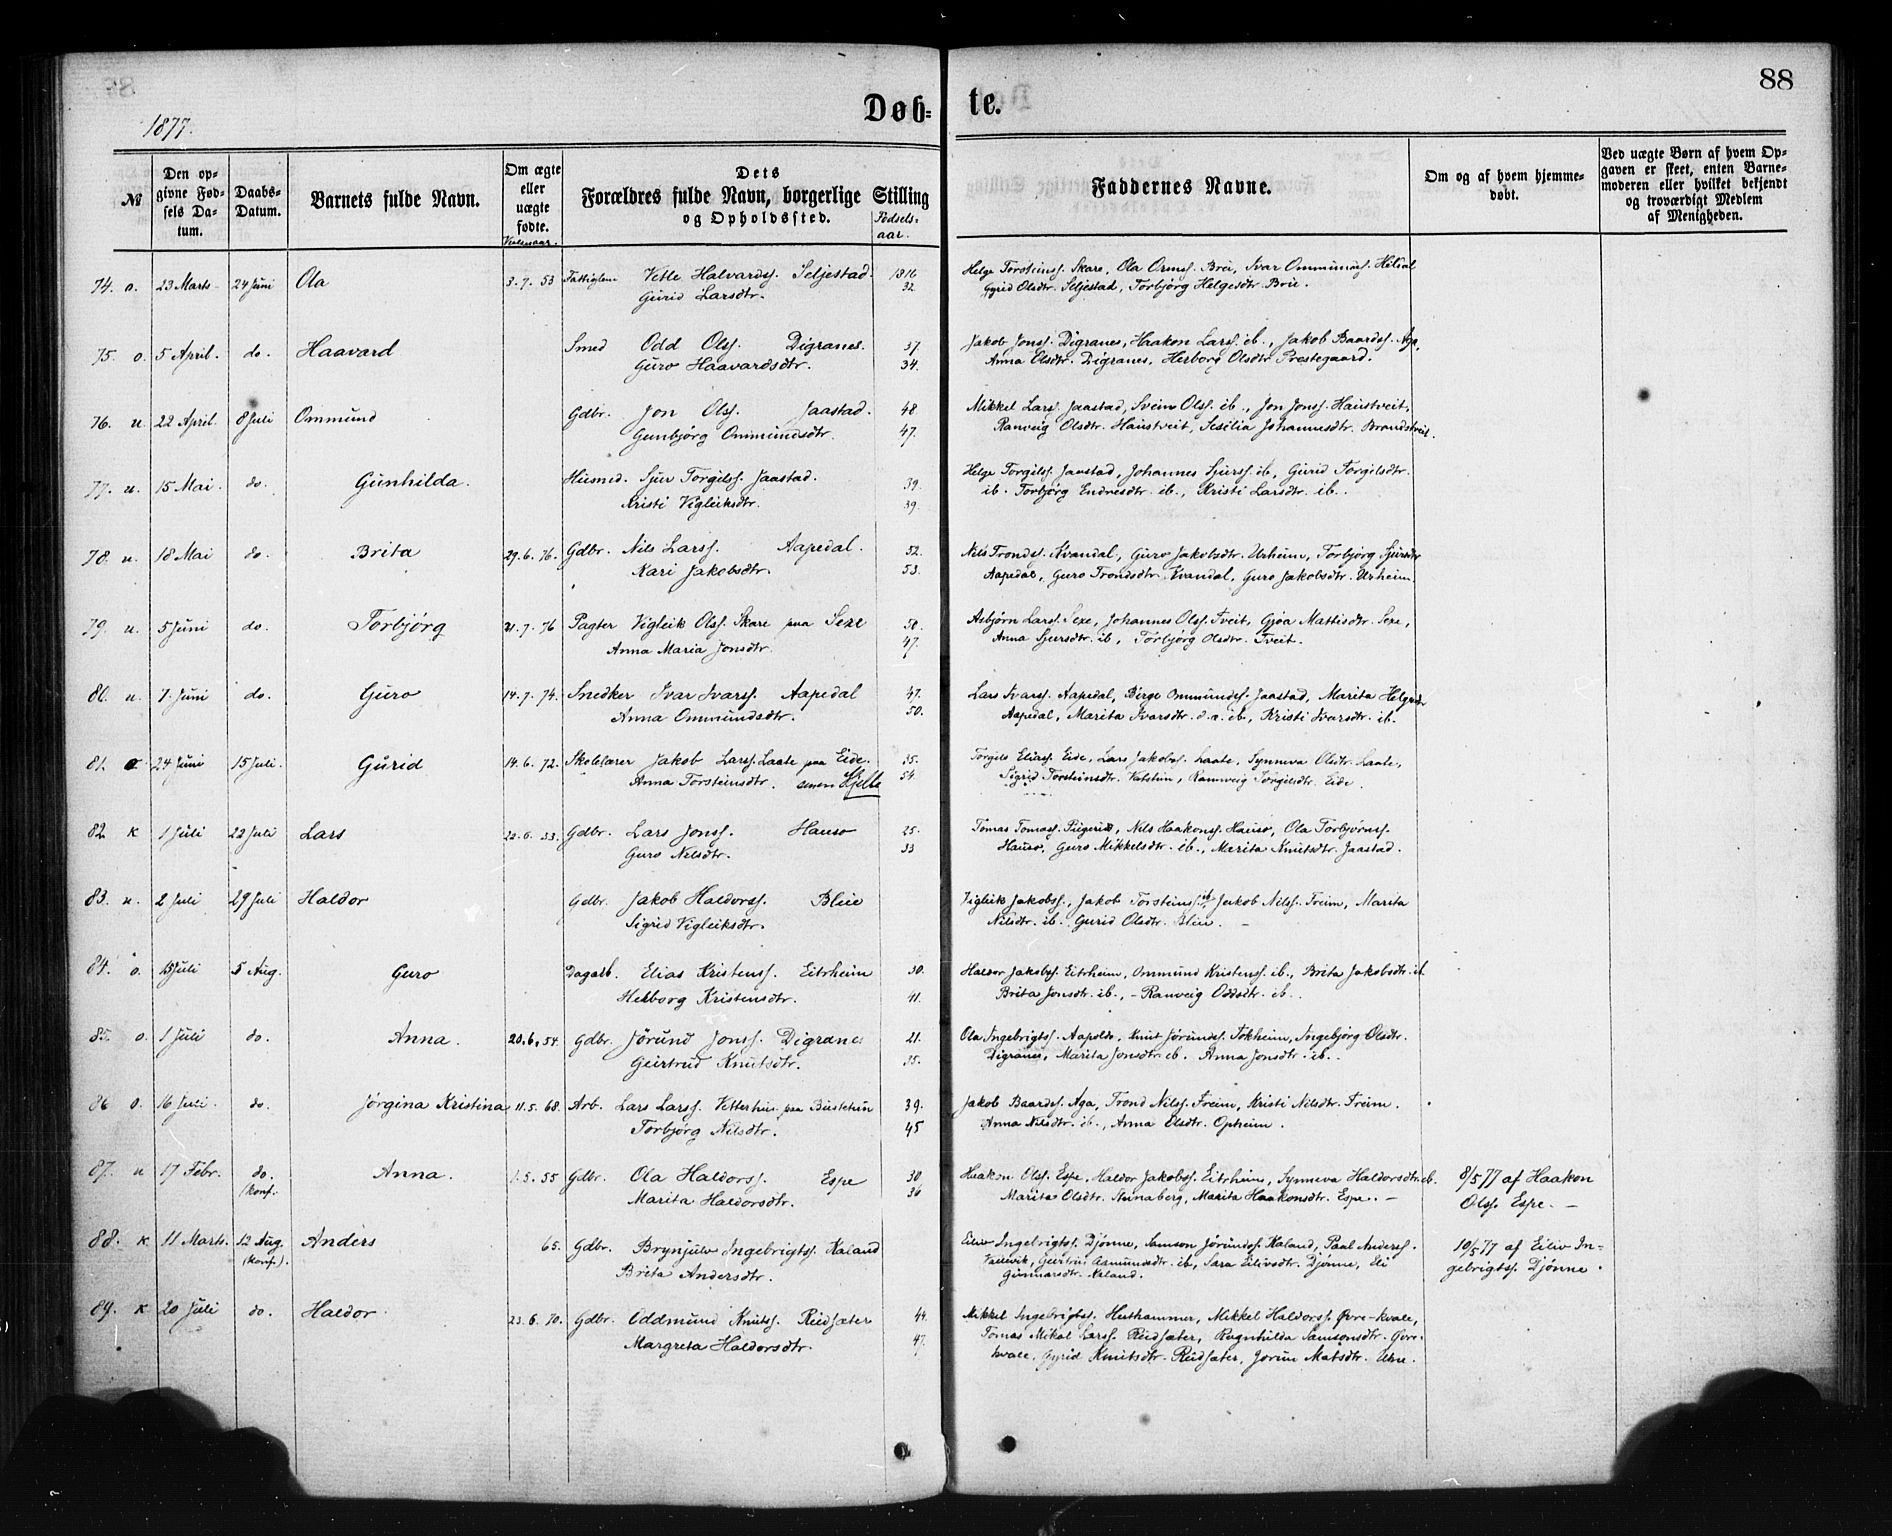 88
Døb= te.
1877.
№
Den op-
givne Fød-
sels Da-
tum.
Daabs-
Datum.
Barnets fulde Navn.
Om ægte
eller
uægte
fødte.
Dets
Forældres fulde Navn, borgerlige Stilling
og Opholdssted.
Fødsels-
aar.
Faddernes Navne.
Om og af hvem hjemme-
døbt.
Ved uægte Børn af hvem Op-
gaven er skeet, enten Barne-
moderen eller hvilket bekjendt
og troværdigt Medlem
af Menigheden.
74. o. 23 Marts 24 Juni Ola 3.7.53 Fattiglem Vetle Halvards. Seljestad. 1816 Helge Torsteinss. Skare, Ola Orms. Brei, Ivar Ommunds.
Gurid Larsdtr. 32. Gyrid Olsdtr. Seljestad, Torbjørg Helgesdtr. Brie.
75. o. 5 April. do. Haavard Smed Odd Olss. Digranes. 37. Jakob Jonss. Digranes, Haakon Larss. ib., Jakob Baardss. Aga,
Guro Haavardsdtr. 34. Anna Olsdtr. Digranes, Herborg Olsdtr. Prestegaard.
76. u. 22 April 8 Juli Ommund Gdbr. Jon Olss. Jaastad. 48 Mikkel Larss. Jaastad, Svein Olss. ib., Jon Jonss. Haustveit,
Gunbjørg Ommundsdtr. 47. Ranveig Olsdtr. Haustveit, Sesilia Johannesdtr. Brandstveit.
77. u. 15 Mai. do. Gunhilda. Husmd. Sjur Torgilss. Jaastad. 39. Helge Torgilss. Jaastad, Johannes Sjurss. ib., Gurid Torgilsdtr.
Kristi Vigleiksdtr. 39. ib. Torbjørg Endresdtr. ib., Kristi Larsdtr. ib.
78. u. 18 Mai do. Brita 29.6.76. Gdbr. Nils Larss. Aapedal. 52. Nils Tronds. Kvandal, Guro Jakobsdtr. Urheim, Torbjørg Sjursdtr
Kari Jakobsdtr. 53. Aapedal, Guro Trondsdtr. Kvandal, Guro Jakobsdtr. Urheim
79. u. 5 Juni do. Torbjørg 21.7.76 Pagter Vigleik Olss. Skare paa Sexe 50. Asbjørn Larss. Sexe, Johannes Olss. Tveit, Gjøa Mattisdtr. Sexe,
Anna Maria Jonsdtr. 47. Anna Sjursdtr. ib, Torbjørg Olsdtr. Tveit.
80. u. 7. Juni do. Guro 14.7.74. Snedker Ivar Ivarss. Aapedal 47. Lars Ivarss. Aapedal, Birge Ommundss. Jaastad, Marita Helgesdtr
Anna Ommundsdtr. 50. Aapedal, Marita Ivarsdtr. d.æ. ib., Kristi Ivarsdtr. ib.
81. o. 24 Juni 15 Juli. Gurid 14.6.72. Skolelærer Jakob Larss. Laate paa Eide. 35. Torgils Eliass. Eide, Lars Jakobss. Laate, Synneva Olsdtr. Laate,
Anna Torsteinsdtr. 54. Sigrid Torsteinsdtr. Ranveig Torgilsdtr. Eide.
82. k 1 Juli 22 Juli Lars 22.6.53. Gdbr. Lars Jonss. Hauso 25. Tomas Tomass. Nils Haakonss. Hauso, Ola Torbjørnss.
Guro Nilsdtr. 33 Hauso, Guro Mikkelsdtr. ib., Marita Knutsdtr. Jaastad.
83. u. 2 Juli 29 Juli Haldor Gdbr. Jakob Haldorss. Bleie Vigleik Jakobss., Jakob Torsteinss. ib, Jakob Nilss. Freim, Marita
Sigrid Vigleiksdtr. Nilsdtr. ib. Gurid Olsdtr. Bleie.
84. o. Juli 5 Aug. Guro Dagarb. Elias Kristenss. Eitrheim 30. Haldor Jakobss. Eitrheim, Ommund Kristenss. ib., Brita Jakobsdtr. ib
Herborg Kristensdtr. 41. Brita Jonsdtr. ib., - Ranveig Oddsdtr. ib.
85. o. 1 Juli do. Anna. 20.6.54. Gdbr. Jørund Jonss. Digranes 21. Ola Ingebrigtss. Aapolde, Knut Jørundss. Tokheim, Ingebjørg Olsdtr.
Geirtrud Knutsdtr. 35. Digranes, Marita Jonsdtr. ib. Anna Jonsdtr. ib.
86 o. 16 Juli. do. Jørgina Kristina 11.5.68. Arb. Lars Larss. Vetterhus paa Bustetun 39. Jakob Baardss. Aga, Trond Nilss. Freim, Kristi Nilsdtr. Freim.
Torbjørg Nilsdtr. 45 Anna Nilsdtr. ib., Anna Olsdtr. Opheim.
87. u 17 Febr. do. (konf.) Anna. 1.5.55 Gdbr. Ola Haldorss. Espe 30 Haakon Olss. Espe, Haldor Jakobss. Eitrheim, Synneva Haldorsdtr. ib. 8/5 77 af Haakon
Marita Haldorsdtr. 36 Marita Olsdtr. Steinaberg, Marita Haakonsdtr. Espe. - Olss. Espe. -
88. k. 11 Marts. 12 Aug. (konf.). Anders 65. Gdbr. Brynjulv Ingebrigtss. Kaland Eiliv Ingebrigtss. Djønne, Samson Jørundss. Kaland, Paal Anderss. 10/5 77 af Eiliv In-
Brita Andersdtr. Geirtrud Asmundsdtr. ib, Sara Eilivsdtr. Djønne, Eli gebrigtss. Djønne.
Gunnarsdtr. Kaland.
89. k 20 Juli do. Haldor 23.6.70. Gdbr. Oddmund Knutss. Reisæter 44. Mikkel Ingebrigtss. Hesthammer, Mikkel Haldorss. Øvre-kvale,
Margreta Haldorsdtr. 47. Tomas Mikal Larss. Reisæter, Ragnhilda Samsonsdtr. Øvre-
kvale, Gyrid Knutsdtr. Reisæter, Jorun Matsdtr. Utne.